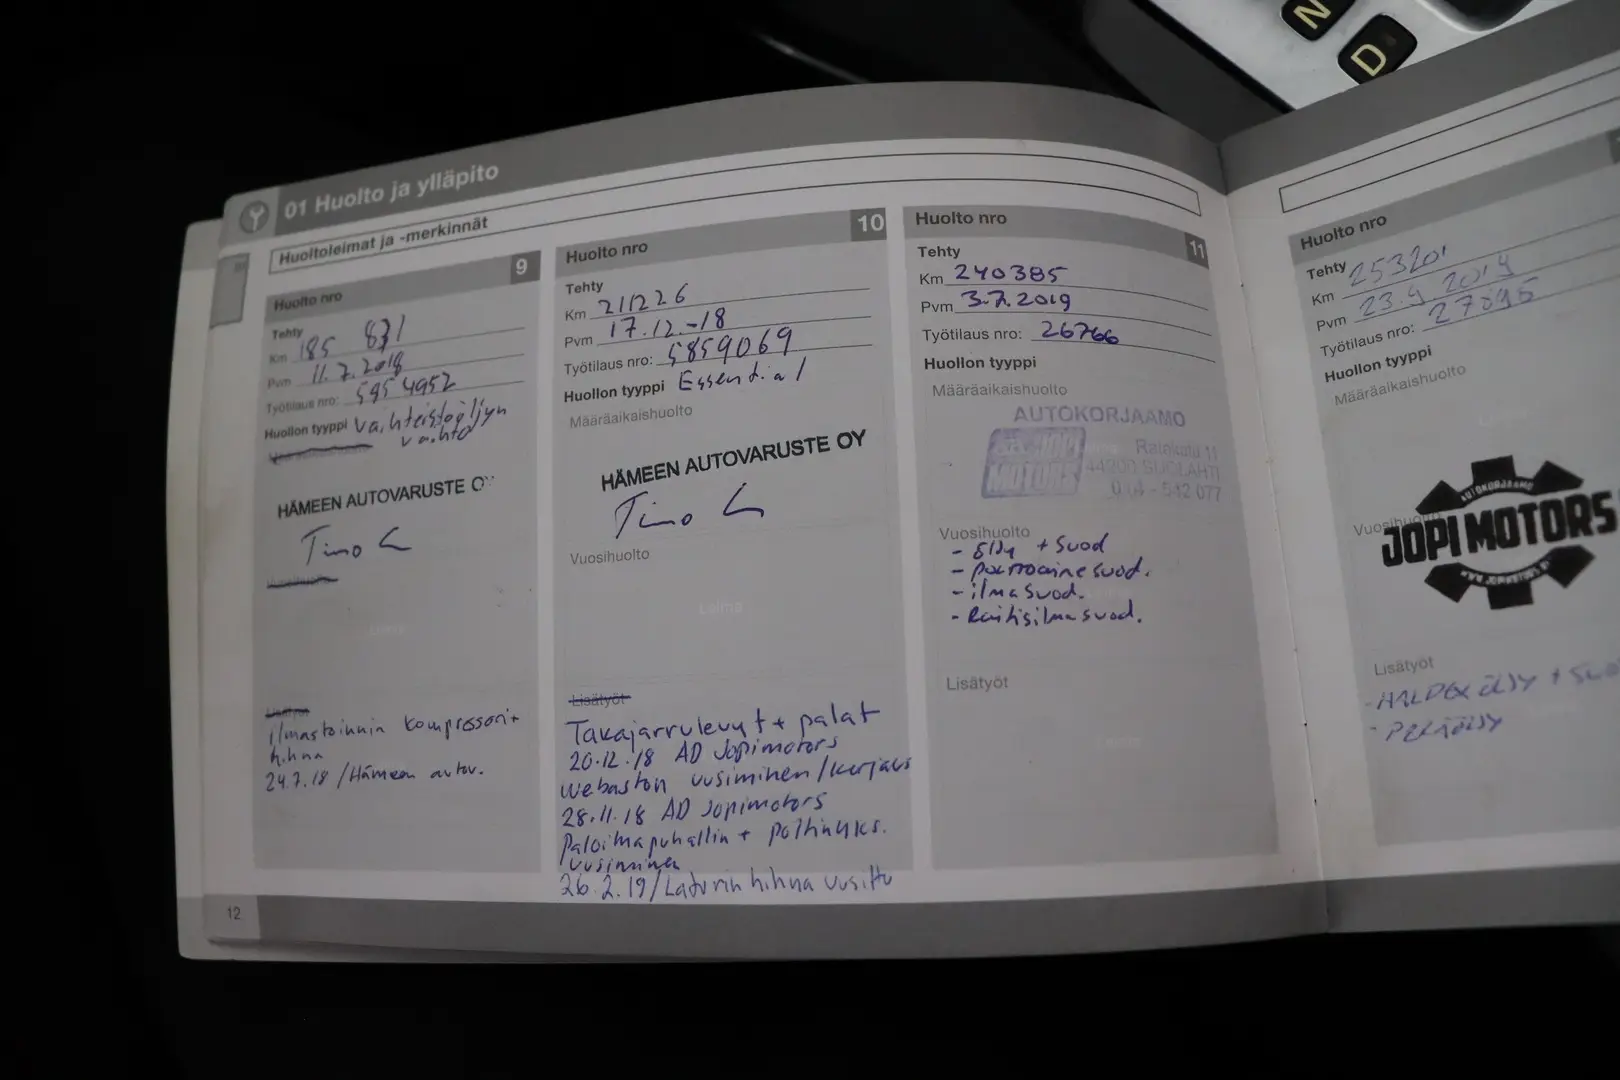 N
D
01 Huolto ja ylläpito
Huoltoleimat ja -merkinnät
Huolto nro 9
Tehty
Km 185 831
Pvm 11.7.2018
Työtilaus nro: 5954952
Huollon tyyppi Vaihteistoöljyn
vaihto
HÄMEEN AUTOVARUSTE OY
Timo
Leima
Lisätyöt
ilmastoinnin kompressorin
hihna
24.7.18 /Hämeen autov.
12
Huolto nro 10
Tehty
Km 211226
Pvm 17.12.-18
Työtilaus nro: 5859069
Huollon tyyppi Essential
Määräaikaishuolto
HÄMEEN AUTOVARUSTE OY
Timo
Vuosihuolto
Leima
Lisätyöt
Takajarrulevyt + palat
20.12.18 AD Jopimotors
Webaston uusiminen/korjaus
28.11.18 AD Jopimotors
Paloilmapuhallin + polttinyks.
uusiminen
26.2.19/Laturin hihna uusittu
Huolto nro 11
Tehty
Km 240385
Pvm 3.7.2019
Työtilaus nro: 26766
Huollon tyyppi
Määräaikaishuolto
AUTOKORJAAMO
JOPI
MOTORS
44200 SUOLAHTI
014 - 542 077
Vuosihuolto
- öljy + suod
- polttoainesuod.
- ilmasuod.
- Raitisilmasuod.
Lisätyöt
Huolto nro
Tehty
Km 253201
Pvm 23.9 2019
Työtilaus nro: 27095
Huollon tyyppi
Määräaikaishuolto
Vuosihuolto
AUTOKORJAAMO
JOPI MOTORS
Lisätyöt
- HALDEX ÖLJY +
- PERÄÖLJY